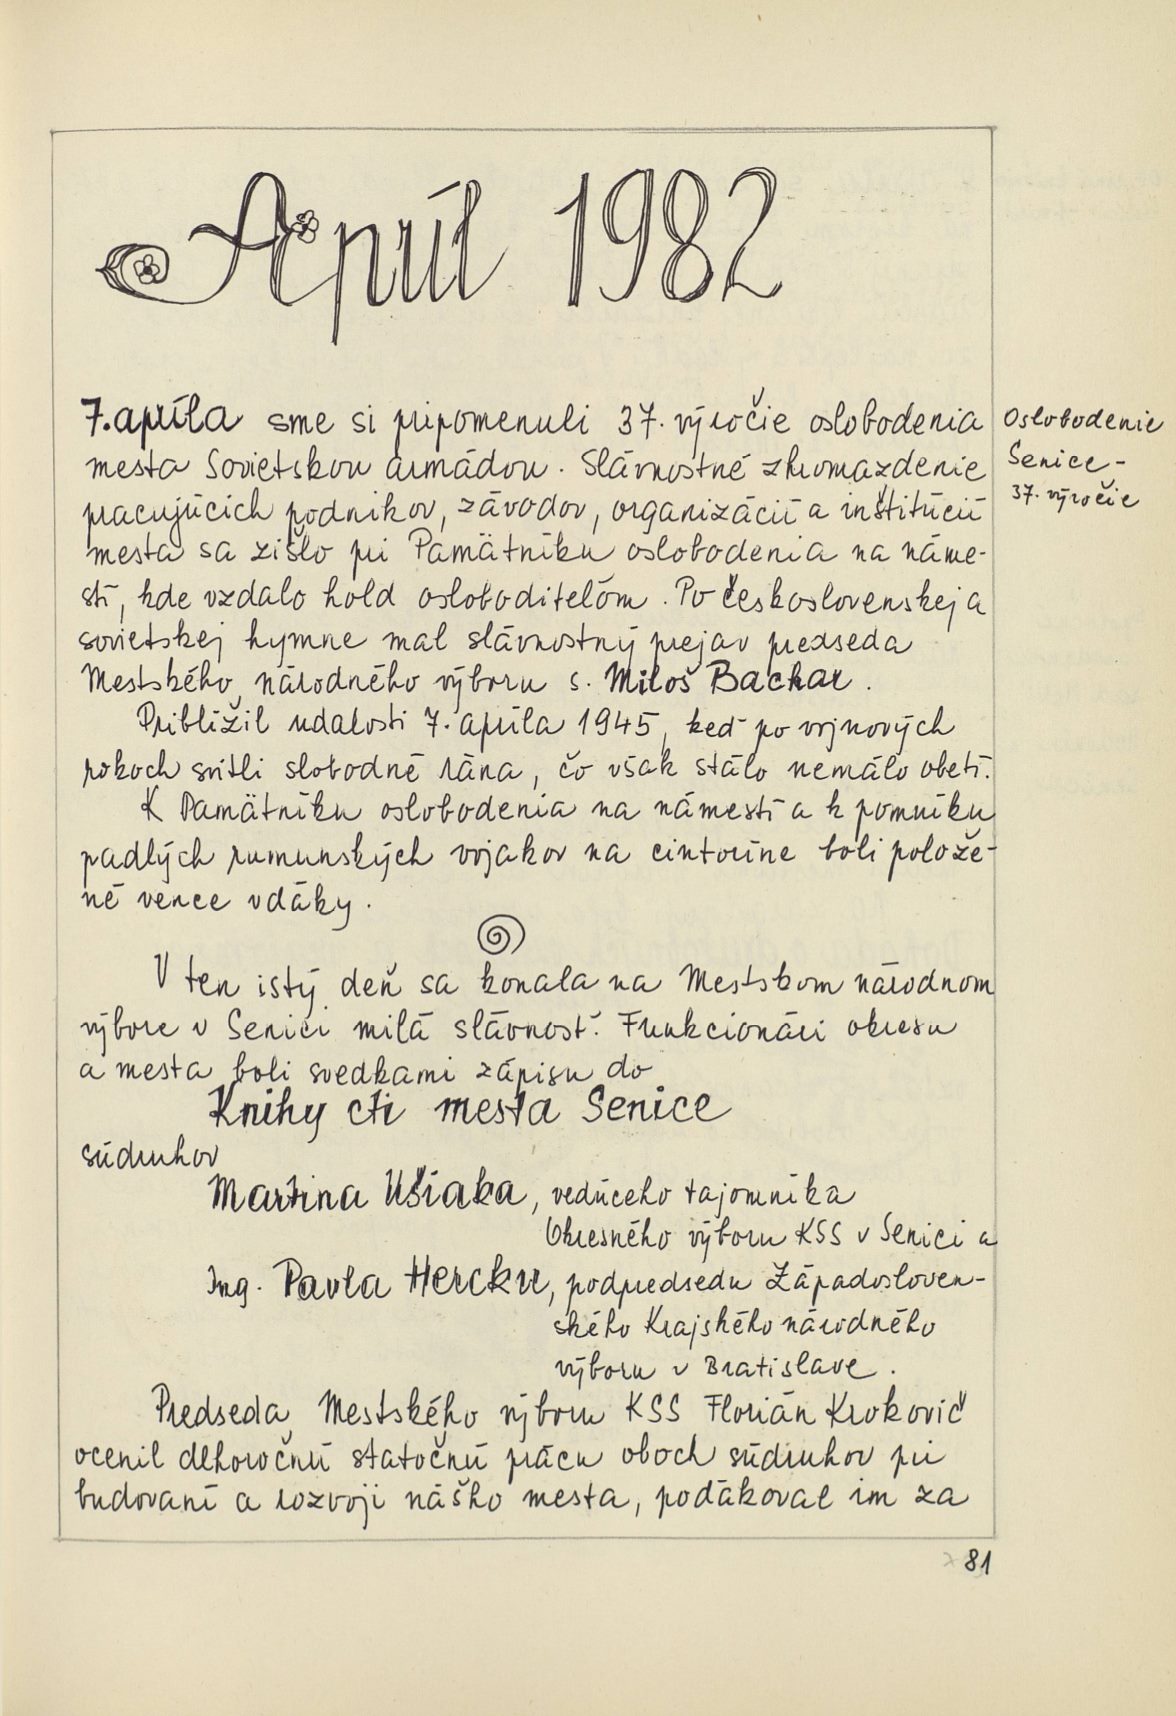 Apríl 1982
7. apríla sme si pripomenuli 37. výročie oslobodenia
mesta Sovietskou armádou. Slávnostné zhromazdenie
pracujúcich podnikov, závodov, organizácií a inštitúcií
mesta sa zišlo pri Pamätníku oslobodenia na náme-
stí, kde vzdalo hold osloboditeľom. Po československej a
sovietskej hymne mal slávnostný prejav predseda
Mestského národného výboru s. Miloš Bachar.
Priblížil udalosti 7. apríla 1945, keď po vojnových
rokoch svitli slobodné rána, čo však stálo nemálo obetí.
K Pamätníku oslobodenia na námestí a k pomníku
padlých rumunských vojakov na cintoríne boli polože-
né vence vďaky.
V ten istý deň sa konala na Mestskom národnom
výbore v Senici milá slávnosť. Funkcionári okresu
a mesta boli svedkami zápisu do
Knihy cti mesta Senice
súdruhov
Martina Ušiaka, vedúceho tajomníka
Okresného výboru KSS v Senici a
Ing. Pavla Hercku, podpredsedu Západosloven-
ského Krajského národného
výboru v Bratislave.
Predseda Mestského výboru KSS Florián Krokovič
ocenil dlhoročnú statočnú prácu oboch súdruhov pri
budovaní a rozvoji nášho mesta, poďakoval im za
Oslobodenie
Senice -
37. výročie
81